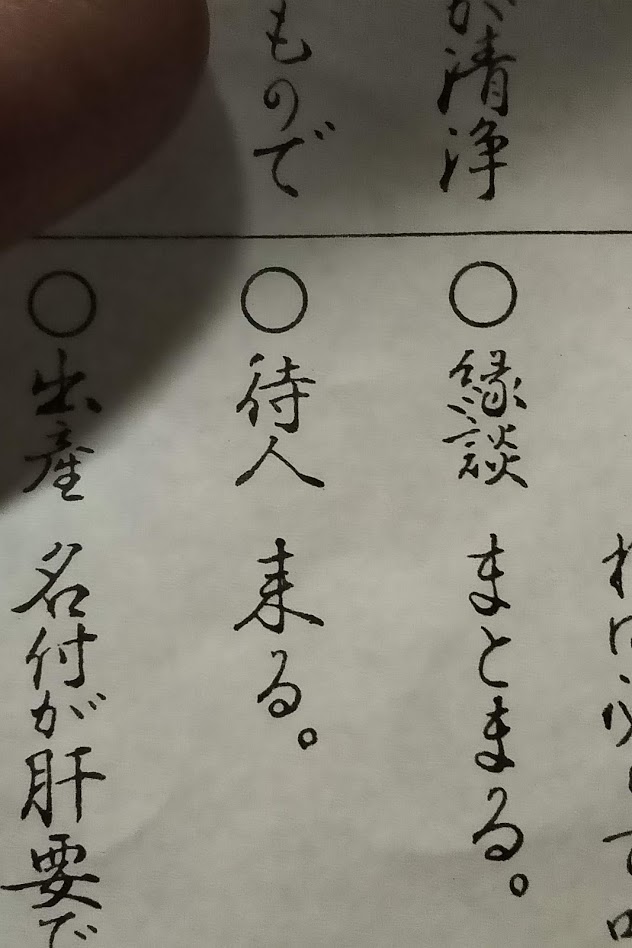 が清浄
もので
○縁談 まとまる。
○待人 来る。
○出産 名付が肝要で